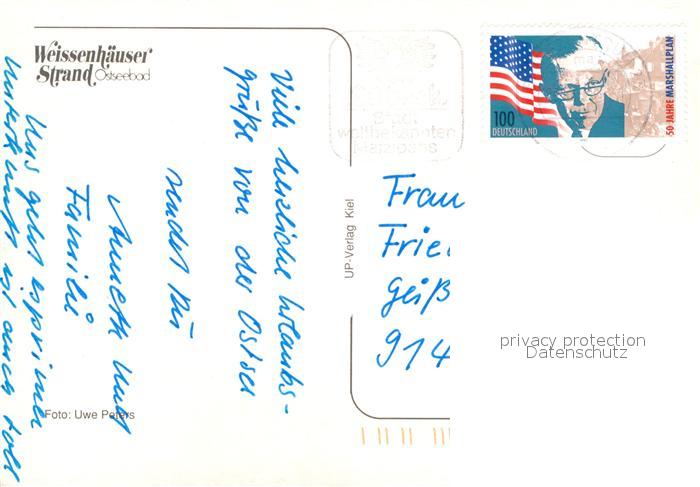 Weissenhäuser
Strand Ostseebad
Viele herzliche Urlaubs-
grüße von der Ostsee
sendet Dir
Annette und
Familie
Uns geht es prima
Unterkunft ist auch toll
Foto: Uwe Peters
UP-Verlag Kiel
weltbekannten
Marzipans
100
DEUTSCHLAND
50 JAHRE MARSHALLPLAN
Frau
Frie
Geiß
914
privacy protection
Datenschutz